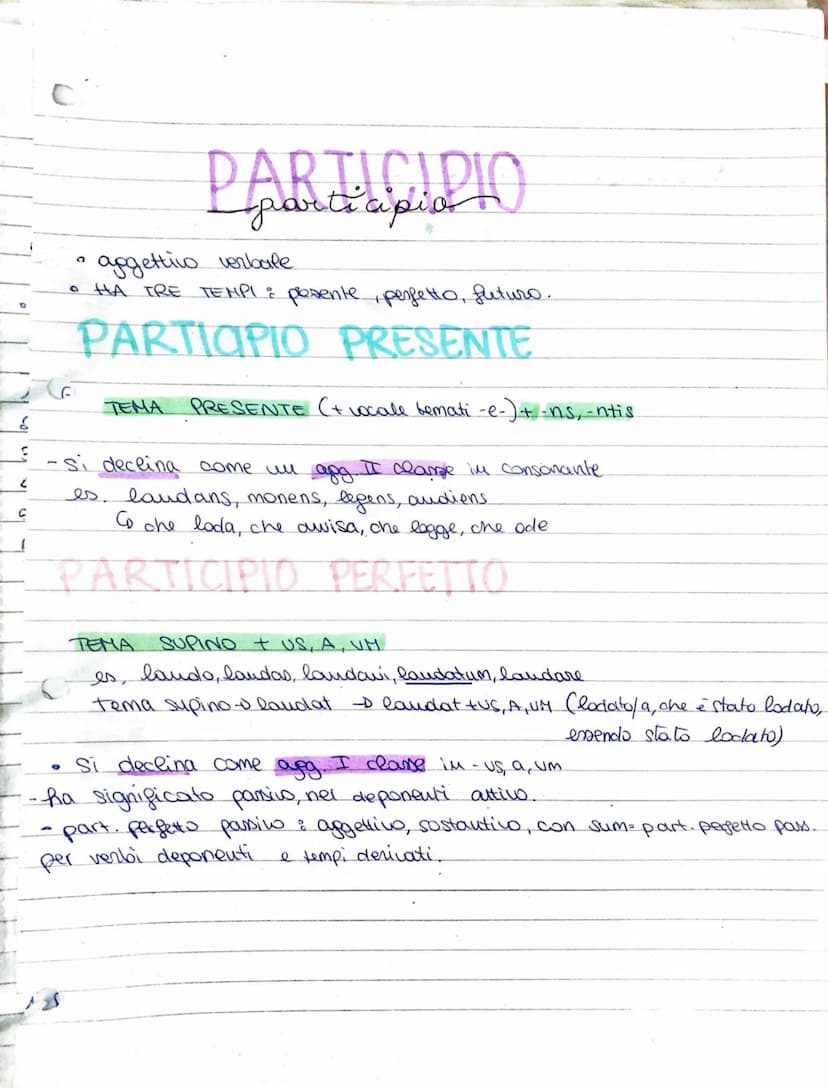 PARTICIPIO
participio
• aggettivo verbale
• HA TRE TEMPI : presente, perfetto, futuro.
PARTICIPIO PRESENTE
TEMA PRESENTE (+ vocale temati -e-) + -ns, -ntis
- Si declina come un agg. II classe in consonante
es. laudans, monens, legens, audiens
↳ che loda, che avvisa, che legge, che ode
PARTICIPIO PERFETTO
TEMA SUPINO + US, A, UM
es. laudo, laudas, laudavi, laudatum, laudare
tema supino → laudat → laudat + US, A, UM (lodato/a, che è stato lodato,
essendo stato lodato)
• Si declina come agg. I classe in -us, a, um
- ha significato passivo, nei deponenti attivo.
- part. perfetto passivo : aggettivo, sostantivo, con sum= part. perfetto pass.
per verbi deponenti e tempi derivati.